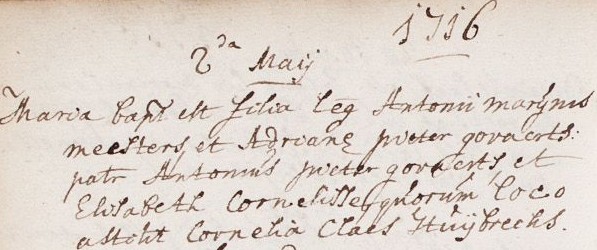 1716
2da Maij
Maria bapt est filia leg Antonii marijnis
meesters et Adrianę pieter govaerts:
patr Antonius pieter govaerts et
Elisabeth Cornelisse, quorum loco
astitit Cornelia Claes Huijbrechs.